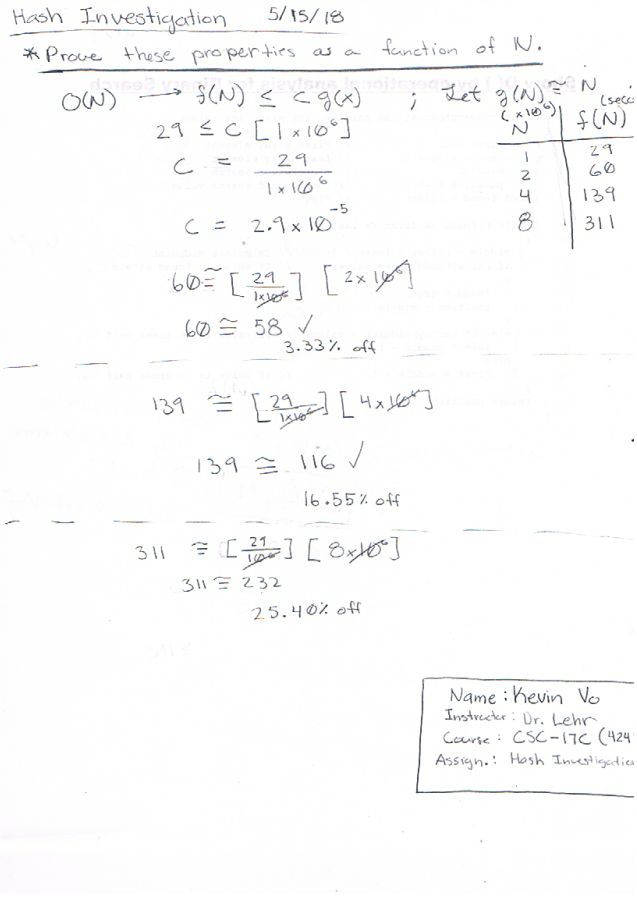 Hash Investigation 5/15/18
*Prove these properties as a function of N.
O(N) → f(N) ≤ C g(x) ; Let g(N) ≅ N
(x10⁶) N | f(N)
1 | 29
2 | 60
4 | 139
8 | 311
29 ≤ C [1x10⁶]
C = 29 / 1x10⁶
C = 2.9 x 10⁻⁵
60 ≅ [29 / 1x10⁶] [2x10⁶]
60 ≅ 58 ✓
3.33% off
139 ≅ [29 / 1x10⁶] [4x10⁶]
139 ≅ 116 ✓
16.55% off
311 ≅ [29 / 10⁶] [8x10⁶]
311 ≅ 232
25.40% off
Name: Kevin Vo
Instructor: Dr. Lehr
Course: CSC-17C (424
Assign.: Hash Investigation